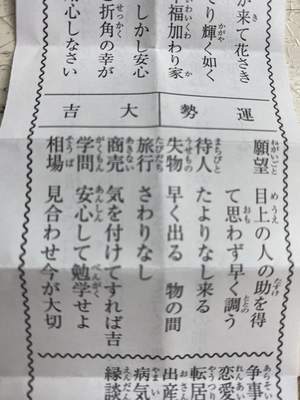 が来て花さき
り輝く如く
福加わり家
しかし安心
折角の幸が
心しなさい
運勢 大吉
願望 目上の人の助を得
て思わず早く調う
待人 たよりなし来る
失物 早く出る 物の間
旅行 さわりなし
商売 気を付けてすれば吉
学問 安心して勉学せよ
相場 見合わせ今が大切
争事
恋愛
転居
出産
病気
縁談